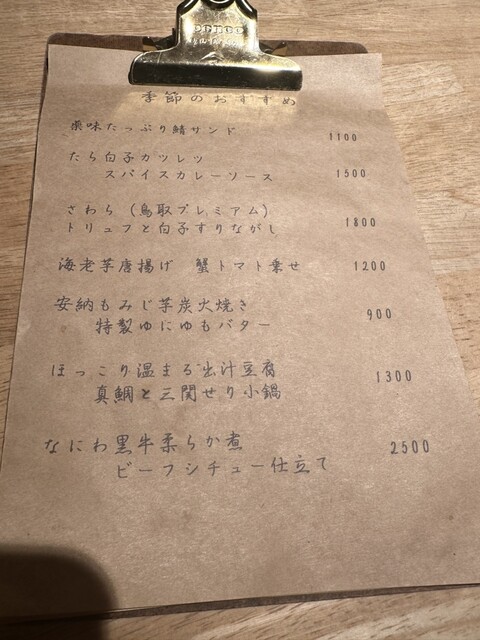 季節のおすすめ
薬味たっぷり鯖サンド 1100
たら白子カツレツ
スパイスカレーソース 1500
さわら(鳥取プレミアム)
トリュフと白子すりながし 1800
海老芋唐揚げ 蟹トマト乗せ 1200
安納もみじ芋炭火焼き
特製ゆにゆもバター 900
ほっこり温まる出汁豆腐
真鯛と三関せり小鍋 1300
なにわ黒牛柔らか煮
ビーフシチュー仕立て 2500